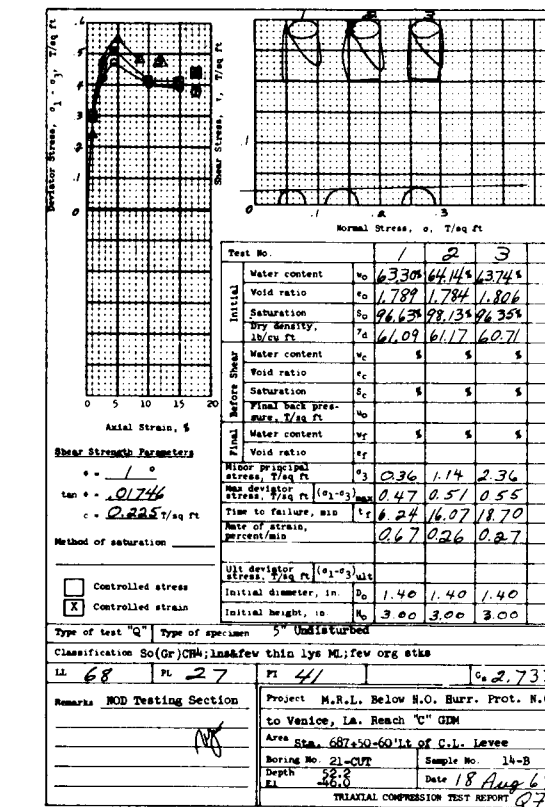 1 2 3
Deviator Stress, σ1 - σ3, T/sq ft
.6
.5
.4
.3
.2
.1
0
Shear Stress, τ, T/sq ft
.1
0
0 .1 .2 .3
Normal Stress, σ, T/sq ft
0 5 10 15 20
Axial Strain, %
Shear Strength Parameters
φ = 1 °
tan φ = .01746
c = 0.225 T/sq ft
Method of saturation
Controlled stress
X Controlled strain
Test No. 1 2 3
Initial
Water content wo 63.30% 64.14% 63.74%
Void ratio eo 1.789 1.784 1.806
Saturation So 96.63% 98.13% 96.35%
Dry density, lb/cu ft γd 61.09 61.17 60.71
Before Shear
Water content wc % % %
Void ratio ec
Saturation Sc % % %
Final back pressure, T/sq ft uo
Final
Water content wf % % %
Void ratio ef
Minor principal stress, T/sq ft σ3 0.36 1.14 2.36
Max deviator stress, T/sq ft (σ1-σ3)max 0.47 0.51 0.55
Time to failure, min tf 6.24 16.07 18.70
Rate of strain, percent/min 0.67 0.26 0.27
Ult deviator stress, T/sq ft (σ1-σ3)ult
Initial diameter, in. Do 1.40 1.40 1.40
Initial height, in. Ho 3.00 3.00 3.00
Type of test "Q" Type of specimen 5" Undisturbed
Classification So(Gr)CH4;lns&few thin lys ML;few org stks
LL 68 PL 27 PI 41 Gs 2.73
Remarks NOD Testing Section
Project M.R.L. Below N.O. Hurr. Prot. N.O.
to Venice, La. Reach "C" GDM
Area Sta. 687+50-60'Lt of C.L. Levee
Boring No. 21-CUT Sample No. 14-B
Depth 52.2
El -46.0 Date 18 Aug 6
TRIAXIAL COMPRESSION TEST REPORT